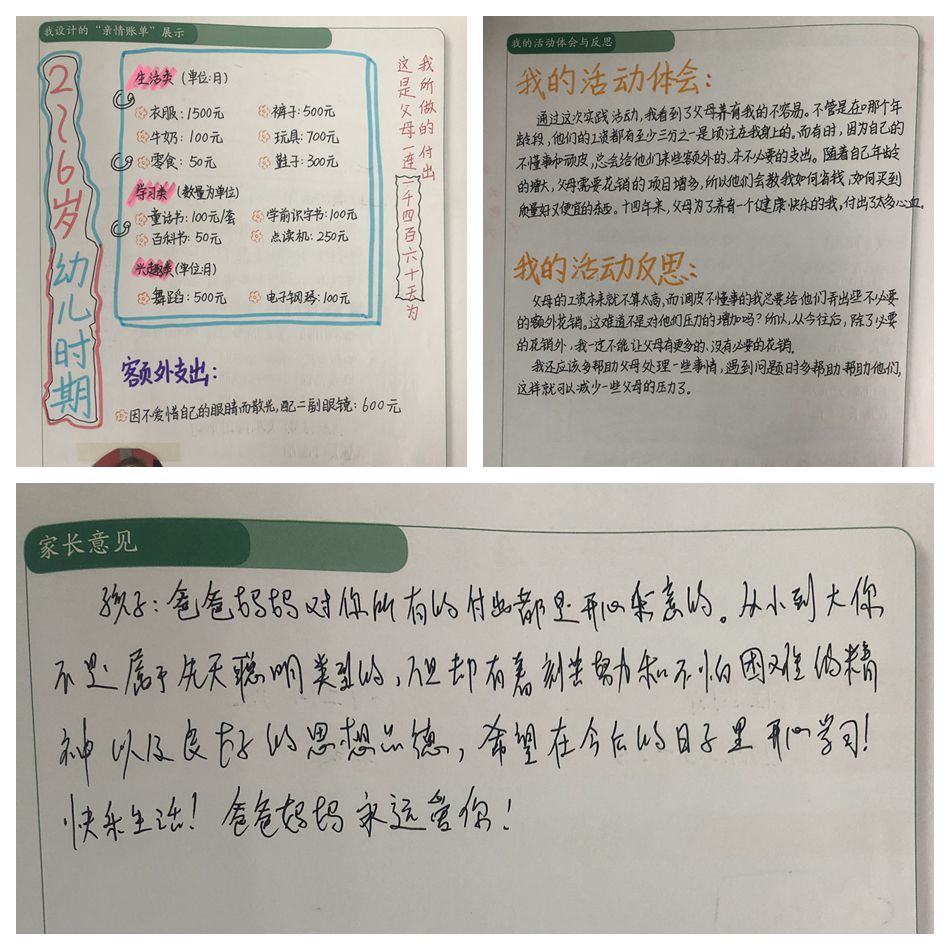 我设计的“亲情账单”展示
2~6岁幼儿时期
生活类 (单位:月)
衣服:1500元 裤子:500元
牛奶:100元 玩具:700元
零食:50元 鞋子:300元
学习类 (数量为单位)
童话书:100元/套 学前识字书:100元
百科书:50元 点读机:250元
兴趣类 (单位:月)
舞蹈:500元 电子钢琴:100元
这是父母一连一千四百六十天为
我所做的付出
额外支出:
因不爱惜自己的眼睛而散光,配二副眼镜:600元
我的活动体会与反思
我的活动体会:
通过这次实践活动,我看到了父母养育我的不容易。不管是在哪个年
龄段,他们的工资都有至少三分之一是倾注在我身上的。而有时,因为自己的
不懂事和顽皮,总会给他们来些额外的、本不必要的支出。随着自己年龄
的增大,父母需要花销的项目增多,所以他们会教我如何省钱,如何买到
质量好又便宜的东西。十四年来,父母为了养育一个健康快乐的我,付出了太多心血。
我的活动反思:
父母的工资本来就不算太高,而调皮不懂事的我总要给他们弄出些不必要
的额外花销。这难道不是对他们压力的增加吗?所以,从今往后,除了必要
的花销外,我一定不能让父母有更多的、没有必要的花销。
我还应该多帮助父母处理一些事情,遇到问题时多帮助帮助他们,
这样就可以减少一些父母的压力了。
家长意见
孩子:爸爸妈妈对你所有的付出都是开心乐意的。从小到大你
不是属于先天聪明类型的,但却有着刻苦努力和不怕困难的精
神以及良好的思想品德,希望在今后的日子里开心学习!
快乐生活!爸爸妈妈永远爱你!